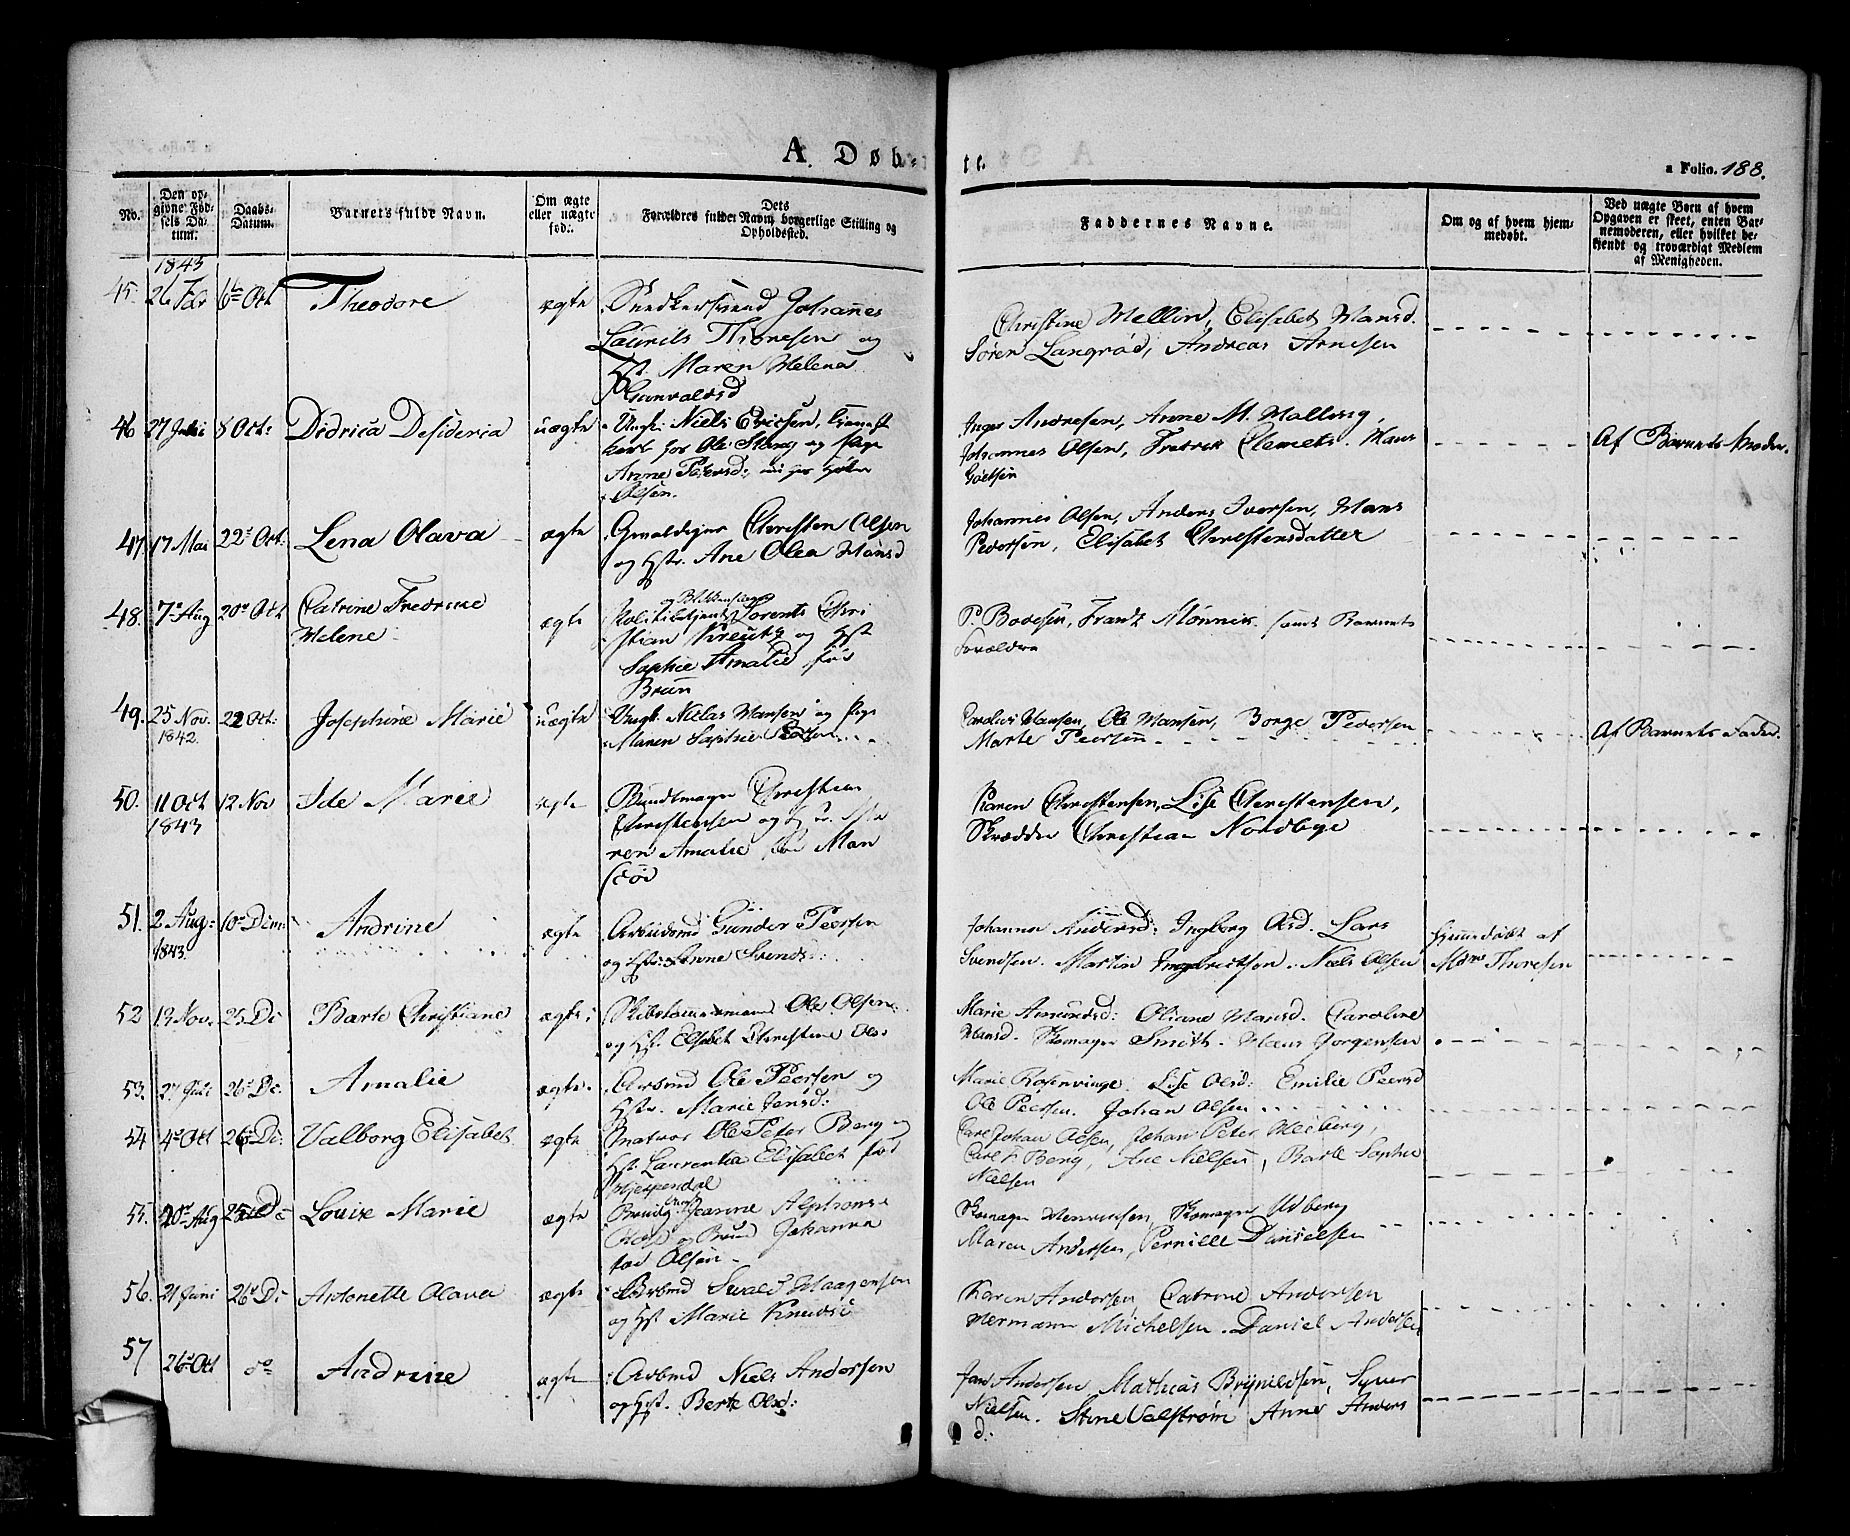 A. Døb-
te.
a Folio. 188.
No.
Den op-
givne Fød-
sels Da-
tum.
Daabs-
Datum.
Barnets fulde Navn.
Om ægte
eller uægte
fød.
Dets
Forældres fulde Navn, borgerlige Stilling og
Opholdssted.
Faddernes Navne.
Om og af hvem hjem-
medøbt.
Ved uægte Børn af hvem
Opgaven er skeet, enten Bar-
nemoderen, eller hvilket be-
kjendt og troværdigt Medlem
af Menigheden.
1843
45. 26 Febr 6te Oct Theodore ægte Snedkersvend Johannes
Laurits Thoresen og
Hst. Maren Helena
Gunvaldsd
Christine Mellin, Elisabet Hansd.
Søren Langrød, Andreas Arnesen
46 27 Juli 8 Oct: Didrica Desideria uægte Ungk: Niels Ericsen, tjenest
karl hos Ole Skeng og Pige
Anne Petersd:
Olsen.
Inger Andresen, Anne M. Malling,
Johannes Olsen, Fredrik Clemets. Hans
Af Barnets Moder.
47. 17 Mai 22de Oct: Lena Olava ægte Christen Olsen
og Hstr. Ane Olea Hansd
Johannes Olsen, Anders Iversen, Hans
Pedersen, Elisabet Christensdatter
48. 7de Aug 20de Oct Catrine Fredrikke
Helene
ægte Politibetjent Lorents Chri
stian Kreutz og Hst
Sophie Amalie fød
Brun
P. Boyesen, Frantz Mønnik. samt Barnets
Forældre
49. 25 Nov.
1842.
22 Oct: Josephine Marie uægte Ungk. Niclas Hansen og Pige
Maren Sophie Pedersen
Carolus Hansen, Ole Hansen, Borge Pedersen
Marte Peersen
Af Barnets Fader.
50. 11 Oct
1843
12 Nov Ide Marie ægte Bundtmager Christian
Christensen og Hst. Ma
ren Amalie fød Man
Karen Christensen, Lise Christensen,
Skrædder Christian Nordbye
51. 2 Aug:
1843.
10de Decm: Andrine ægte Arbeidsmd Gunder Peersen
og Hstr: Anne Svends:
Johanna Andersd: Ingborg Olsd. Lars
Svendsen. Martin Ingebrictsen. Niels Olsen
Hjemmedøbt af
Mdm Thoresen
52 13 Nov. 25 De Barte Christiane ægte Skibstømmermand Ole Olsen
og Hst. Elsebet Christine Ols:
Marie Amundsd: Oliane Hansd. Caroline
Hansd. Skomager Smith. Hans Jørgensen
53. 27 Juli 26de De. Amalie ægte Arbmd Ole Peersen og
Hstr. Marie Jensd:
Marie Rosenvinge. Lise Olsd: Emilie Peersd
Ole Peersen. Johan Olsen
54 4de Oct 26de De: Valborg Elisabet ægte Snatvor Ole Peter Berg og
Hst. Laurentia Elisabet fød
Hjespendal
Carl Johan Olsen, Johan Peter Heiberg,
Carl F. Berg, Ane Nielsen, Barte Sophie
Nielsen
55. 20de Aug 25de De Louise Marie ægte Jeanne Alphonse
og Brud Johanna
fød Olsen
Skomager Henriksen, Skomager Udberg
Maren Andersen, Pernille Danielsen
56. 21 Juni 26de De Antonette Olava ægte Arbmd Sivald Haagensen
og Hst Marie Knudsd
Karen Andersen, Catrine Andersen
Hermann Michelsen. Daniel Andersen
57 26de Oct do Andrine ægte Arbmd Niels Andersen
og Hst. Berte Olsd:
Jan Andersen, Mathias Brynildsen, Syver
Nielsen. Stine Valstrøm Anne Anders
d: